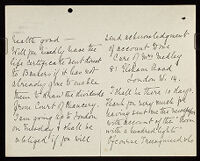 health good
Will you kindly have the
life certificate sent direct
to Bankers if it has not
already gone to enable
them to draw the dividends
from Court of Chancery.
I am going up to London
on Tuesday & shall be
obliged if you will
send acknowledgment
of account to me
Care of Mrs Medley
81 Elsham Road
London W. 14.
I shall be there 10 days.
Thank you very much for
having sent me the
with account of the "Room
with a hundred lights"
Of course I recognised who